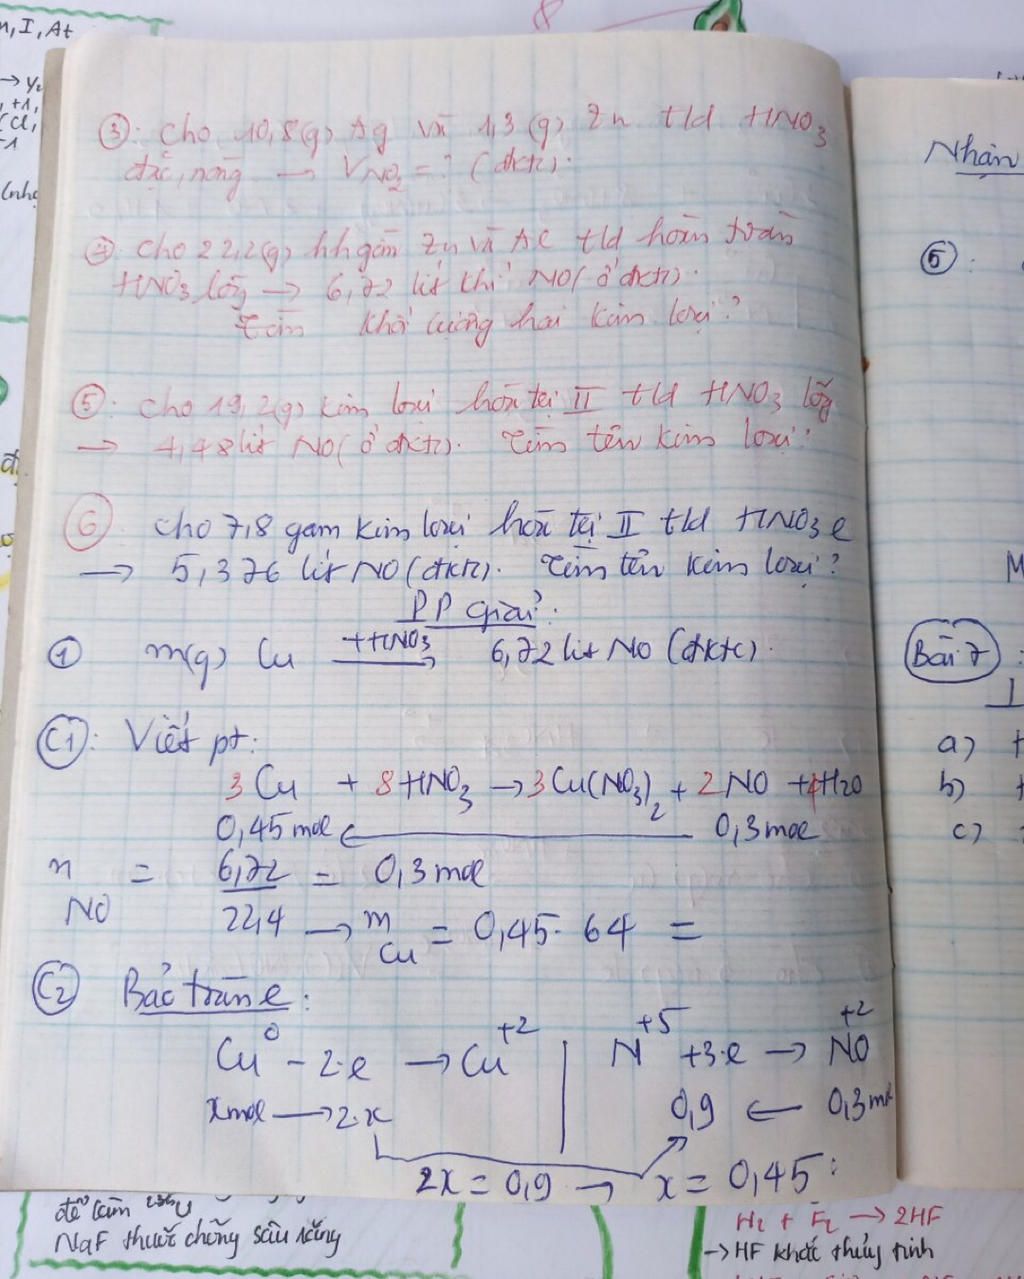 n, I, At
③: Cho 10,8(g) Ag và 1,3(g) Zn tld HNO3
đặc, nóng → VNO2 = ? (đktc).
④: Cho 22,2(g) hh gồm Zn và Al tld hoàn toàn
HNO3 lõg → 6,72 lít khí NO (ở đktc).
Tìm khối lượng hai kim loại?
⑤: Cho 19,2(g) kim loại hóa trị II tld HNO3 lõg
→ 4,48 lít NO (ở đktc). Tìm tên kim loại?
⑥ Cho 7,8 gam kim loại hóa trị II tld HNO3 l
→ 5,376 lít NO (đktc). Tìm tên kim loại?
PP giải:
① m(g) Cu +HNO3 → 6,72 lít NO (đktc).
C1: Viết pt:
3Cu + 8HNO3 → 3Cu(NO3)2 + 2NO + 4H2O
0,45 mol ← 0,3 mol
n NO = 6,72 / 22,4 = 0,3 mol
→ m Cu = 0,45. 64 =
C2 Bảo toàn e:
Cu0 - 2.e → Cu+2 | N+5 +3.e → N+2O
x mol → 2.x 0,9 ← 0,3 mol
2x = 0,9 → x = 0,45:
Nhận
⑤:
M
Bài 7:
a)
b)
c)
để làm
NaF thuốc chống sâu răng
H2 + F2 → 2HF
→ HF khắc thủy tinh